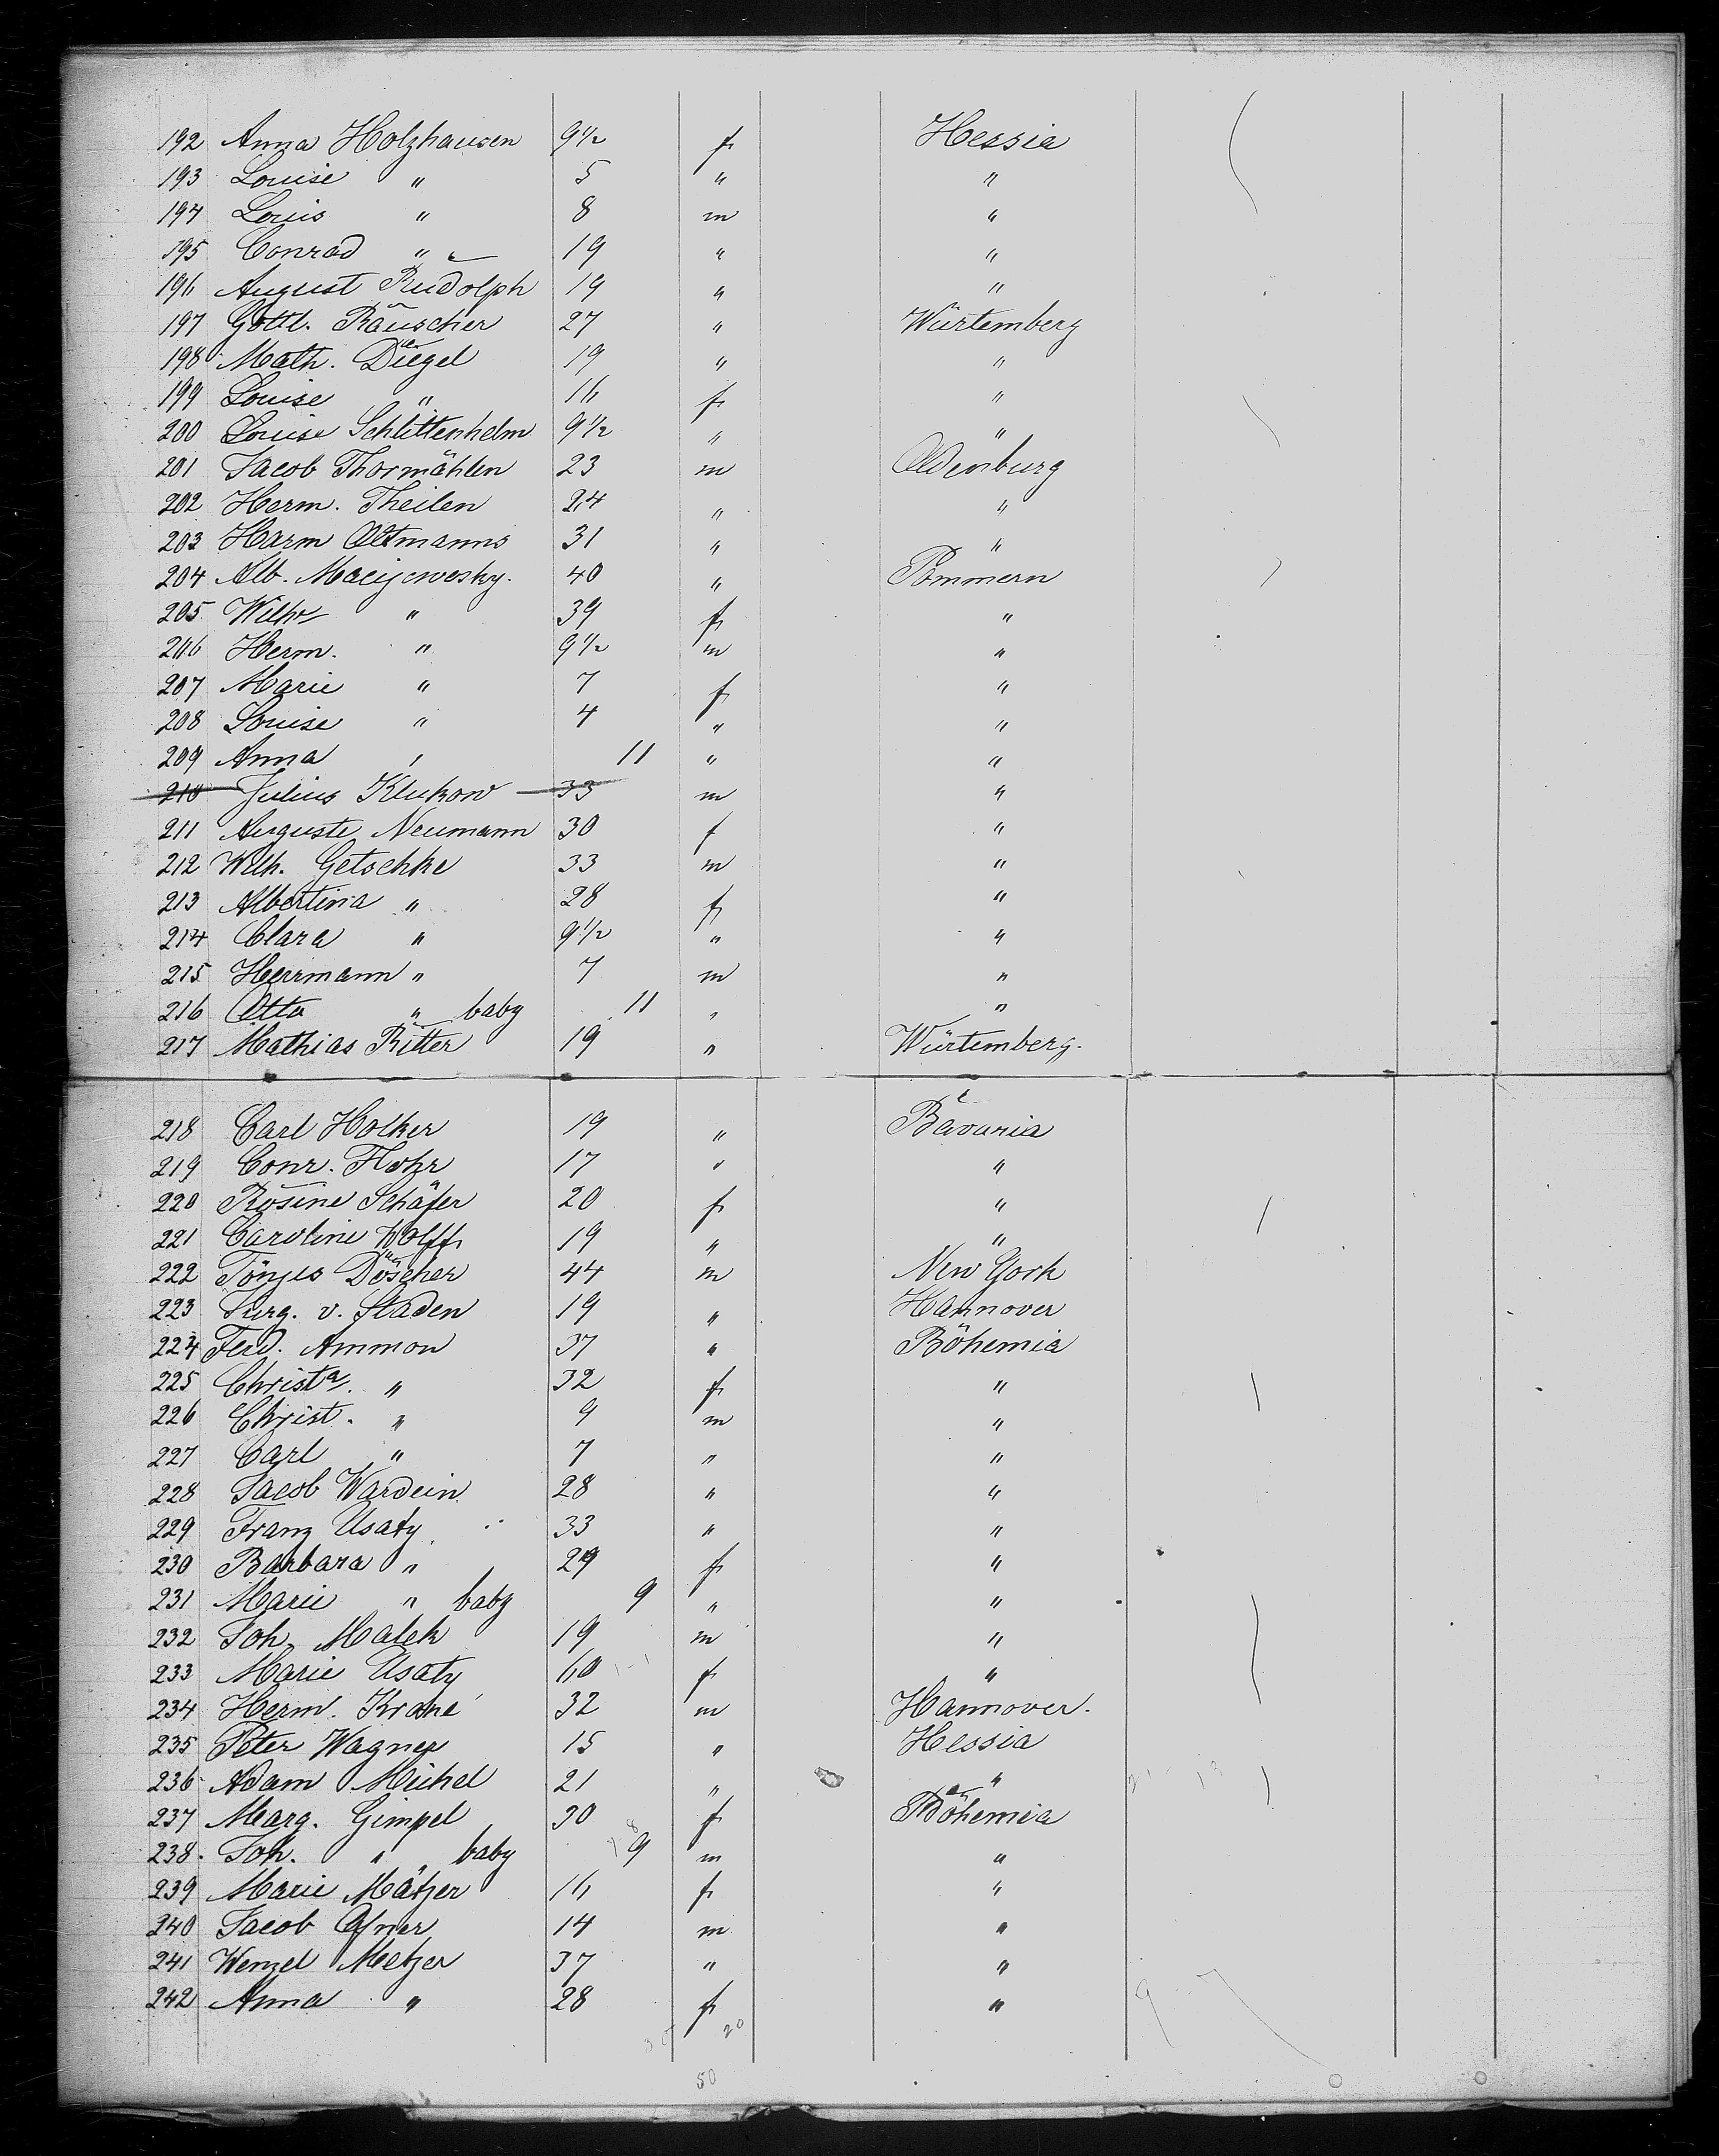 192 Anna Holzhausen 9 1/2 f Hessia
193 Louise " 5 " "
194 Louis " 8 m "
195 Conrad " 19 " "
196 August Rudolph 19 " "
197 Gottl. Räuscher 27 " Würtemberg
198 Math. Diegel 19 " "
199 Louise " 16 f "
200 Louise Schlittenhelm 9 1/2 " "
201 Jacob Thormählen 23 m Oldenburg
202 Herm. Theilen 24 " "
203 Harm Oltmanns 31 " "
204 Alb. Macijewesky. 40 " Pommern
205 Wilhe " 39 f "
206 Herm. " 9 1/2 m "
207 Marie " 7 f "
208 Louise " 4 " "
209 Anna " 11 " "
210 Julius Klukow 33 m "
211 Auguste Neumann 30 f "
212 Wilh. Getschke 33 m "
213 Albertina " 28 f "
214 Clara " 9 1/2 " "
215 Herrmann " 7 m "
216 Otto " baby 11 " "
217 Mathias Ritter 19 " Würtemberg.
218 Carl Holker 19 " Bavaria
219 Conr. Flohr 17 " "
220 Rosine Schäfer 20 f "
221 Caroline Wolff 19 " "
222 Tönjes Döscher 44 m New York
223 Jurg. v. Staden 19 " Hannover
224 Ferd. Ammon 37 " Böhemia
225 Christa. " 32 f "
226 Christ. " 9 m "
227 Carl " 7 " "
228 Jacob Wardein 28 " "
229 Franz Usaty 33 " "
230 Barbara " 29 f "
231 Marie " baby 9 " "
232 Joh. Malek 19 m "
233 Marie Usaty 60 f "
234 Herm. Krone 32 m Hannover.
235 Peter Wagner 15 " Hessia
236 Adam Michel 21 " "
237 Marg. Gimpel 30 f Böhemia
238. Joh. " baby 9 m "
239 Marie Mätzer 16 f "
240 Jacob Ofner 14 m "
241 Wenzel Metzer 37 " "
242 Anna " 28 f "
30 20
50